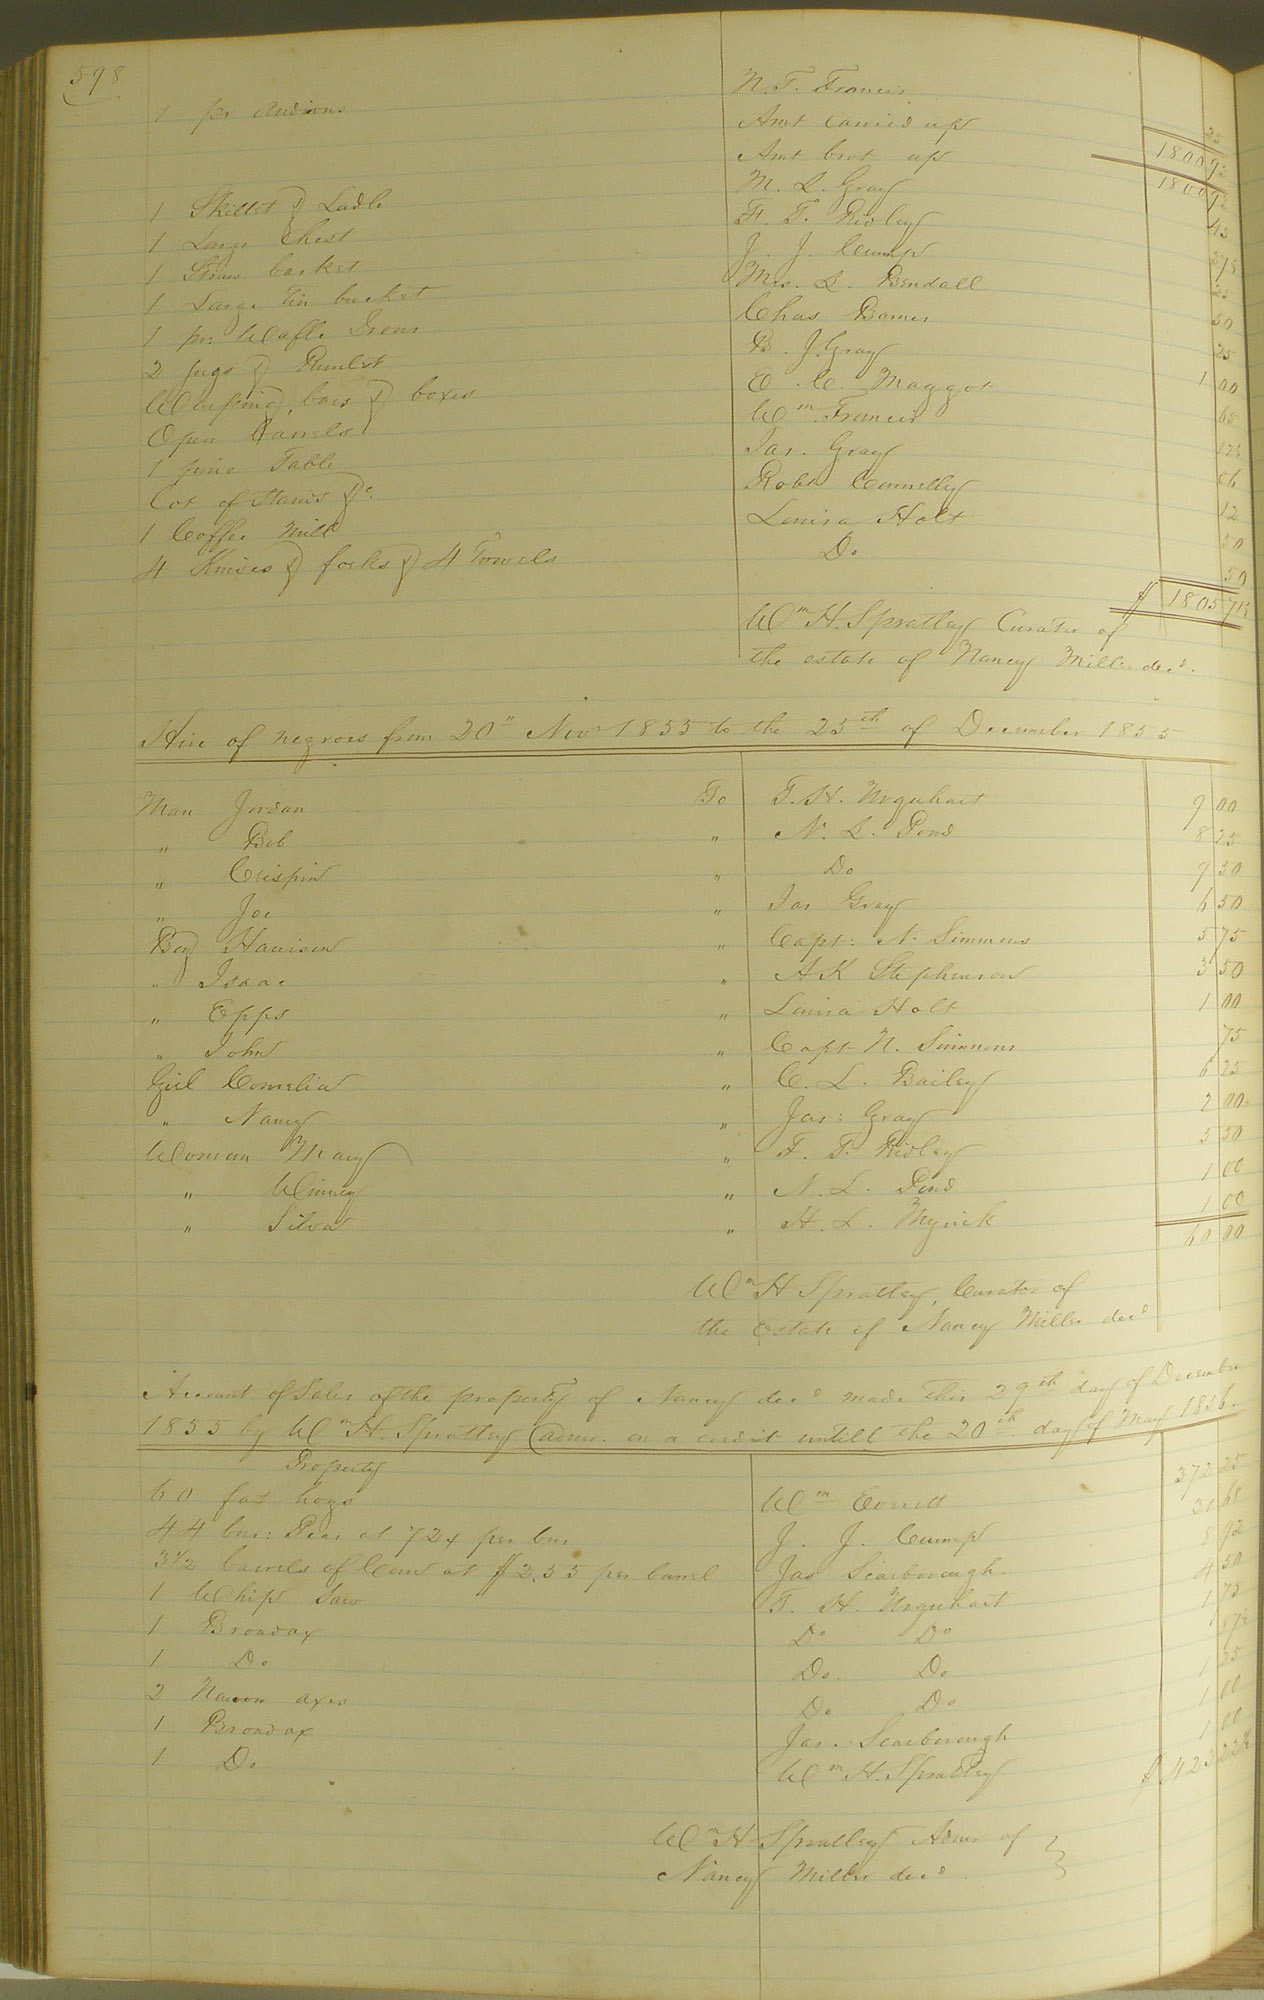 598
1 pr Andirons N. T. Francis 25
Amt Carried up 1800 92
Amt brot up 1800 92
1 Skillet & Ladle M. L. Gray 45
1 Large Chest F. T. Ridley 37½
1 Straw basket J. J. Crump 25
1 Large Tin bucket Mrs. L. Bendall 50
1 pr. Waffle Irons Chas Barnes 25
2 Jugs & Rundlet B. J. Gray 1 00
barrs & boxes E. C. Maggot 65
Open barrels Wm. Francis 12½
1 pine Table Jas. Gray 06
Lot of Staves &c. Robt Connelly 12
1 Coffee Mill Louisa Holt 50
4 Knives & forks & 4 Towels Do 50
$ 1805 71½
Wm H. Spratley Curator of
the estate of Nancy Miller decd.
Hire of negroes from 20" Novr 1855 to the 25th of December 1855
Man Jordan To T. H. Urquhart 9 00
" Bob " N. L. Pond 8 25
" Crispin " Do 9 50
" Joe " Jas Gray 6 50
Boy Harrison " Capt: N. Simmons 5 75
" Isaac " A K Stephenson 3 50
" Epps " Louisa Holt 1 00
" John " Capt N. Simmons 75
Girl Cornelia " C. L. Bailey 6 25
" Nancy " Jas: Gray 2 00
Woman Mary " F. T. Ridley 5 50
" Winney " N. L. Pond 1 00
" Silva " H. L. Myrick 1 00
60 00
Wm H Spratley, Curator of
the Estate of Nancy Miller decd
Account of Sales of the property of Nancy decd made this 29th day of December
1855 by Wm H. Spratley (admr. on a credit untill the 20th day of May 1856.
Property
60 fat hogs Wm Everett 372 25
44 bus: Peas at 72¢ per bus J. J. Crump 31 68
3½ barrels of Corn at $2.55 per barrel Jas Scarborough. 8 92
1 Whip Saw T. H. Urquhart 4 50
1 Broadax Do Do 1 75
1 Do Do. Do 87½
2 Narrow axes Do Do 1 25
1 Broadax Jas. Scarborough 1 00
1 Do. Wm H. Spratley 1 00
$ 423 22½
Wm H Spratley Admr of
Nancy Miller decd.